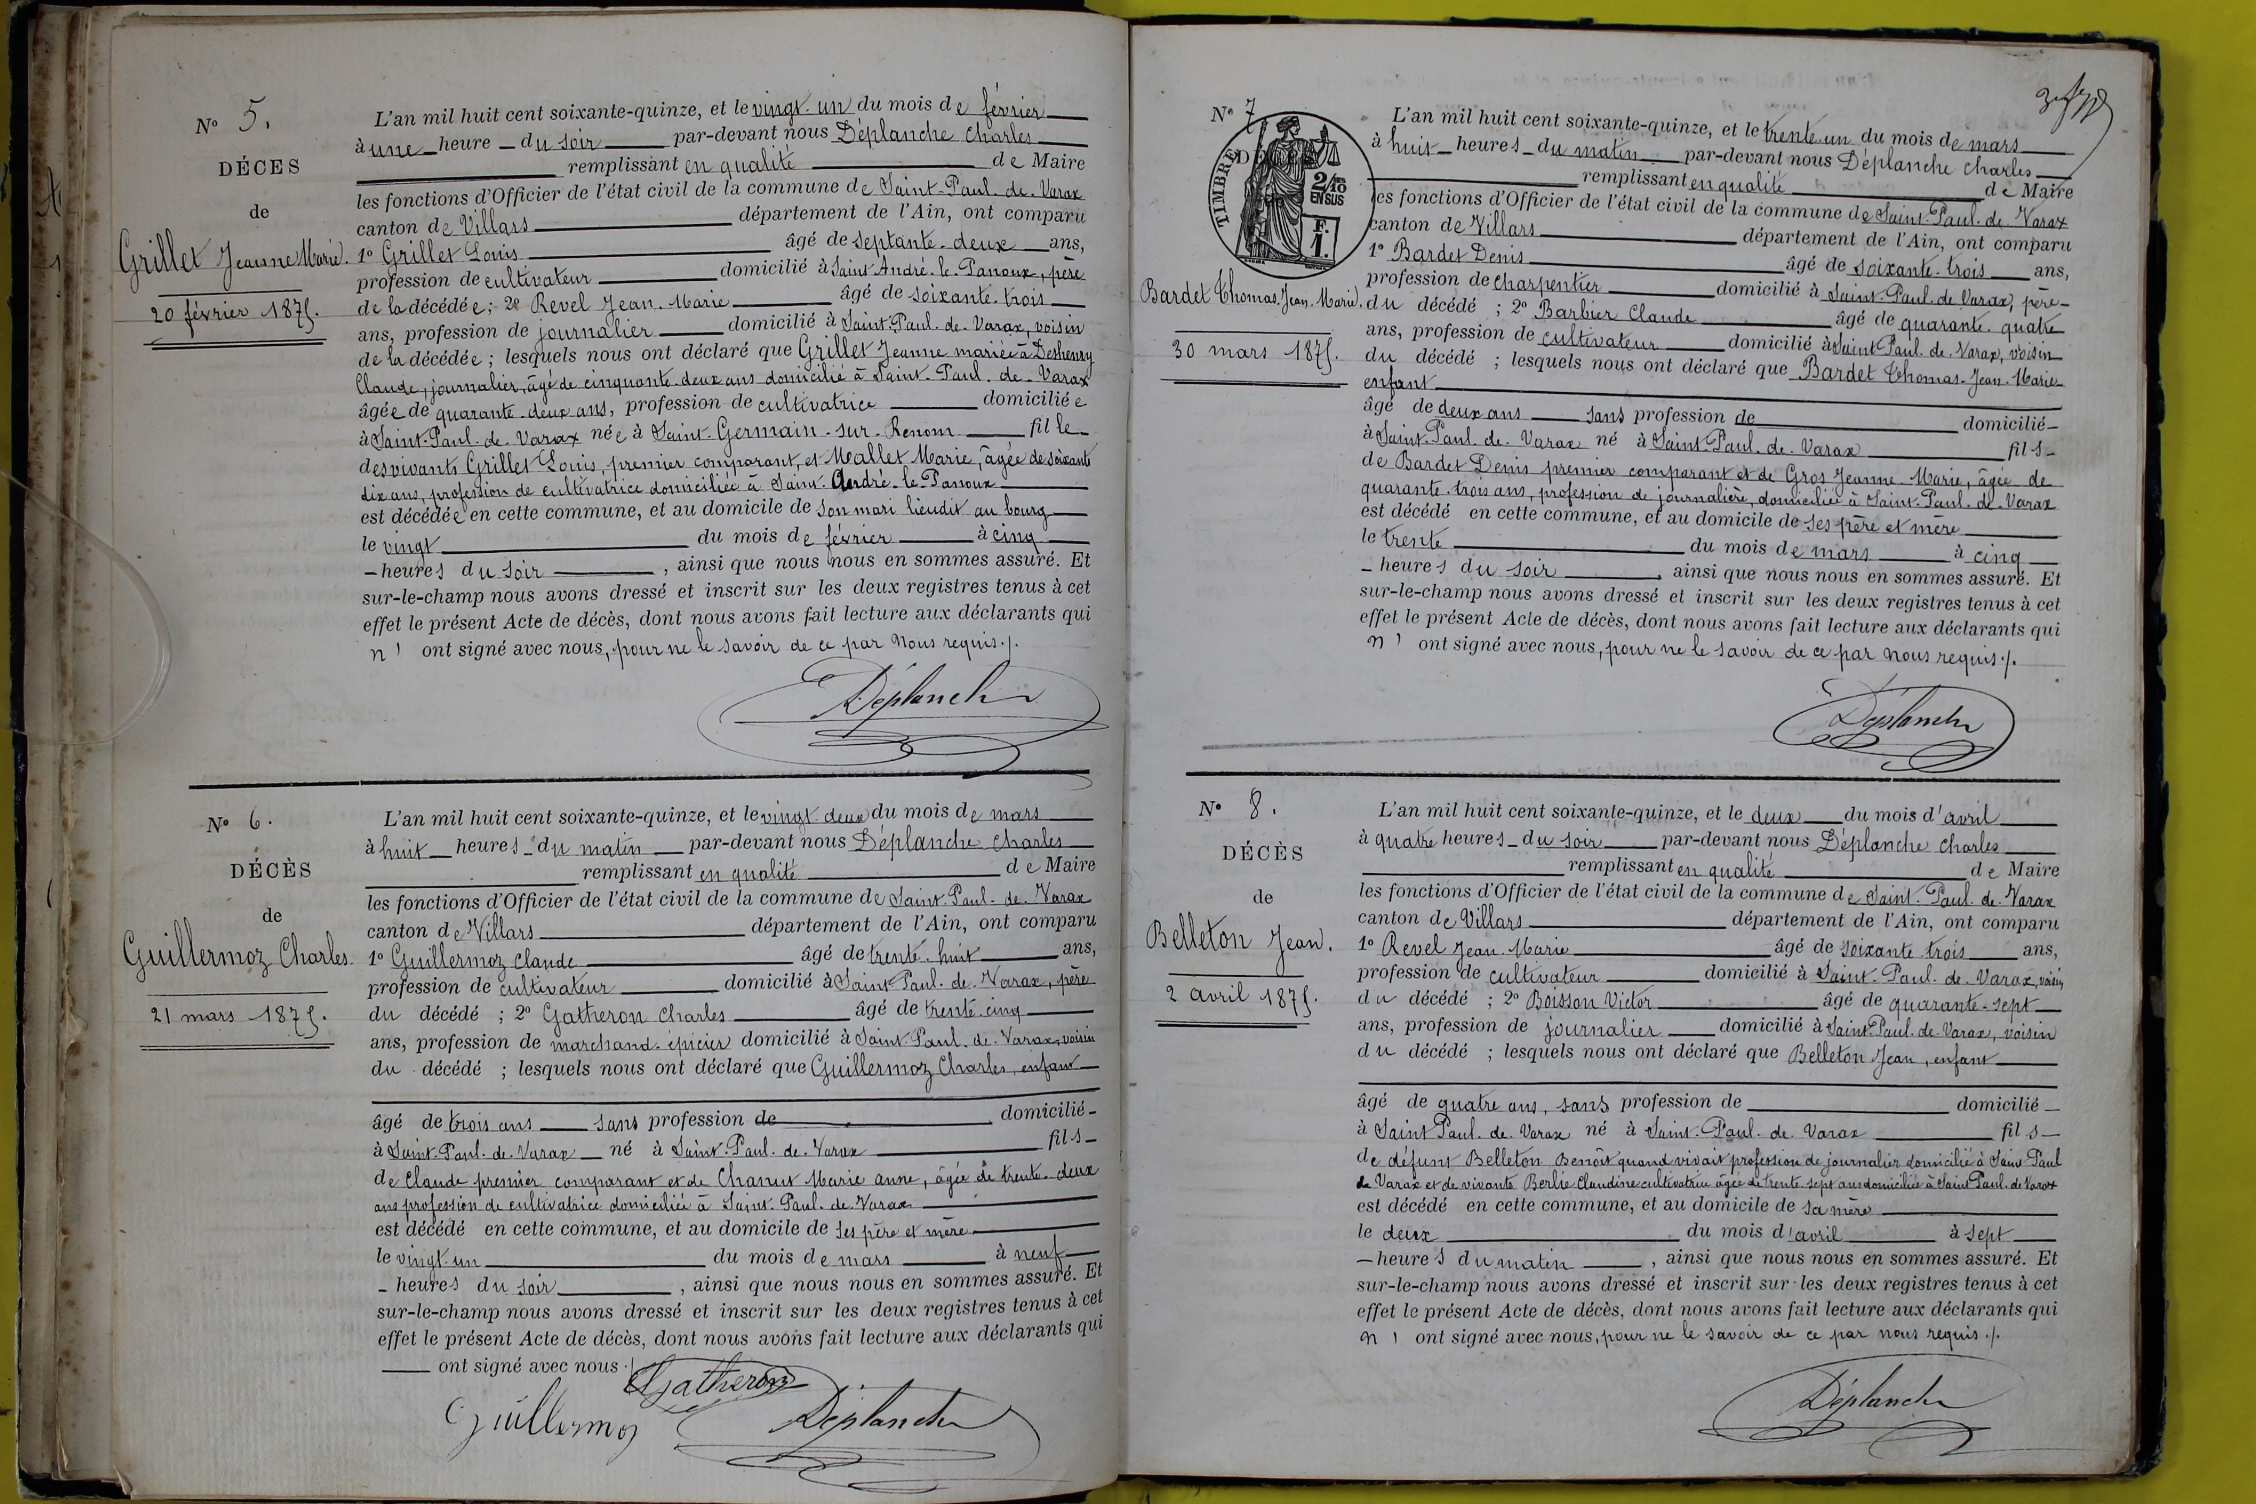 N° 5.
DÉCES
de
Grillet Jeanne Marie.
20 février 1875.
L'an mil huit cent soixante-quinze, et le vingt-un du mois de février
à une heure du soir par-devant nous Déplanche Charles
remplissant en qualité de Maire
les fonctions d'Officier de l'état civil de la commune de Saint-Paul-de-Varax
canton de Villars département de l'Ain, ont comparu
1° Grillet Louis âgé de septante-deux ans,
profession de cultivateur domicilié à Saint André-le-Panoux, père
de la décédée; 2° Revel Jean-Marie âgé de soixante-trois
ans, profession de journalier domicilié à Saint-Paul-de-Varax, voisin
de la décédée; lesquels nous ont déclaré que Grillet Jeanne mariée à
Claude, journalier, âgé de cinquante-deux ans domicilié à Saint-Paul-de-Varax
âgée de quarante-deux ans, profession de cultivatrice domiciliée
à Saint-Paul-de-Varax née à Saint-Germain-sur-Renom fille
des vivants Grillet Louis, premier comparant, et Mallet Marie, âgée de soixante
dix ans, profession de cultivatrice domiciliée à Saint-André-le-Panoux
est décédée en cette commune, et au domicile de son mari lieudit au bourg
le vingt du mois de février à cinq
heures du soir, ainsi que nous nous en sommes assuré. Et
sur-le-champ nous avons dressé et inscrit sur les deux registres tenus à cet
effet le présent Acte de décès, dont nous avons fait lecture aux déclarants qui
n' ont signé avec nous, pour ne le savoir de ce par nous requis./.
Déplanche
N° 6.
DÉCÈS
de
Guillermoz Charles.
21 mars 1875.
L'an mil huit cent soixante-quinze, et le vingt-deux du mois de mars
à huit heures du matin par-devant nous Déplanche Charles
remplissant en qualité de Maire
les fonctions d'Officier de l'état civil de la commune de Saint-Paul-de-Varax
canton de Villars département de l'Ain, ont comparu
1° Guillermoz Claude âgé de trente-huit ans,
profession de cultivateur domicilié à Saint-Paul-de-Varax, père
du décédé ; 2° Gatheron Charles âgé de trente-cinq
ans, profession de marchand-épicier domicilié à Saint-Paul-de-Varax, voisin
du décédé ; lesquels nous ont déclaré que Guillermoz Charles, enfant
âgé de trois ans sans profession de domicilié
à Saint-Paul-de-Varax né à Saint-Paul-de-Varax fils
de Claude premier comparant et de Chanut Marie anne, âgée de trente-deux
ans profession de cultivatrice domiciliée à Saint-Paul-de-Varax
est décédé en cette commune, et au domicile de ses père et mère
le vingt-un du mois de mars à neuf
heures du soir, ainsi que nous nous en sommes assuré. Et
sur-le-champ nous avons dressé et inscrit sur les deux registres tenus à cet
effet le présent Acte de décès, dont nous avons fait lecture aux déclarants qui
ont signé avec nous./.
Gatheron
Guillermoz Déplanche
N° 7
TIMBRE
2/10 EN SUS
F. 1.
Bardet Thomas-Jean-Marie.
30 mars 1875.
L'an mil huit cent soixante-quinze, et le trente-un du mois de mars
à huit heures du matin par-devant nous Déplanche Charles
remplissant en qualité de Maire
les fonctions d'Officier de l'état civil de la commune de Saint-Paul-de-Varax
canton de Villars département de l'Ain, ont comparu
1° Bardet Denis âgé de soixante-trois ans,
profession de charpentier domicilié à Saint-Paul-de-Varax, père
du décédé ; 2° Barbier Claude âgé de quarante-quatre
ans, profession de cultivateur domicilié à Saint-Paul-de-Varax, voisin
du décédé ; lesquels nous ont déclaré que Bardet Thomas-Jean-Marie
enfant
âgé de deux ans sans profession de domicilié
à Saint-Paul-de-Varax né à Saint-Paul-de-Varax fils
de Bardet Denis premier comparant et de Gros Jeanne-Marie, âgée de
quarante-trois ans, profession de journalière, domiciliée à Saint-Paul-de-Varax
est décédé en cette commune, et au domicile de ses père et mère
le trente du mois de mars à cinq
heures du soir, ainsi que nous nous en sommes assuré. Et
sur-le-champ nous avons dressé et inscrit sur les deux registres tenus à cet
effet le présent Acte de décès, dont nous avons fait lecture aux déclarants qui
n' ont signé avec nous, pour ne le savoir de ce par nous requis./.
Déplanche
N° 8.
DÉCÈS
de
Belleton Jean.
2 avril 1875.
L'an mil huit cent soixante-quinze, et le deux du mois d'avril
à quatre heures du soir par-devant nous Déplanche Charles
remplissant en qualité de Maire
les fonctions d'Officier de l'état civil de la commune de Saint-Paul-de-Varax
canton de Villars département de l'Ain, ont comparu
1° Revel Jean-Marie âgé de soixante-trois ans,
profession de cultivateur domicilié à Saint-Paul-de-Varax, voisin
du décédé ; 2° Boisson Victor âgé de quarante-sept
ans, profession de journalier domicilié à Saint-Paul-de-Varax, voisin
du décédé ; lesquels nous ont déclaré que Belleton Jean, enfant
âgé de quatre ans, sans profession de domicilié
à Saint Paul-de-Varax né à Saint-Paul-de-Varax fils
de défunt Belleton Benoît quand vivait profession de journalier domicilié à Saint Paul
de Varax et de vivante Berlie Claudine cultivatrice âgée de trente-sept ans domiciliée à Saint Paul-de-Varax
est décédé en cette commune, et au domicile de sa mère
le deux du mois d'avril à sept
heures du matin, ainsi que nous nous en sommes assuré. Et
sur-le-champ nous avons dressé et inscrit sur les deux registres tenus à cet
effet le présent Acte de décès, dont nous avons fait lecture aux déclarants qui
n' ont signé avec nous, pour ne le savoir de ce par nous requis./.
Déplanche